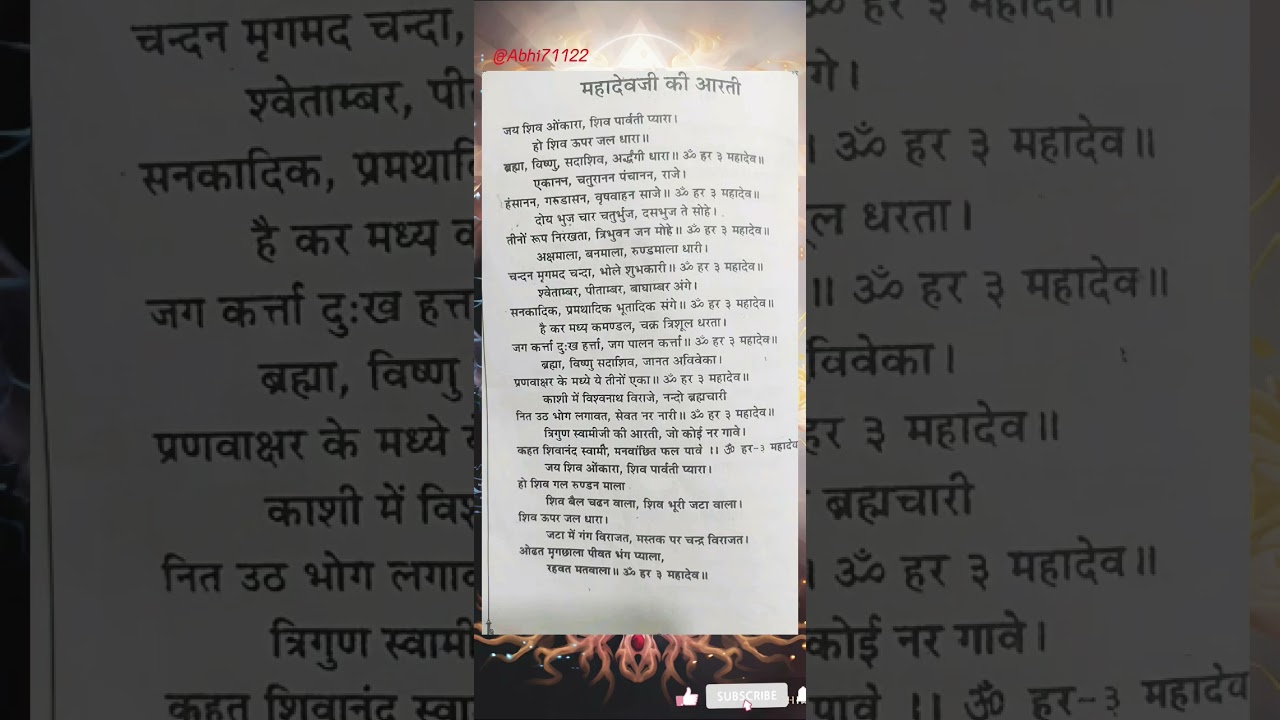 @Abhi71122
महादेवजी की आरती
जय शिव ओंकारा, शिव पार्वती प्यारा।
हो शिव ऊपर जल धारा॥
ब्रह्मा, विष्णु, सदाशिव, अर्द्धंगी धारा॥ ॐ हर ३ महादेव॥
एकानन, चतुरानन पंचानन, राजे।
हंसानन, गरुडासन, वृषवाहन साजे॥ ॐ हर ३ महादेव॥
दोय भुज चार चतुर्भुज, दसभुज ते सोहे।
तीनों रूप निरखता, त्रिभुवन जन मोहे॥ ॐ हर ३ महादेव॥
अक्षमाला, बनमाला, रुण्डमाला धारी।
चन्दन मृगमद चन्दा, भोले शुभकारी॥ ॐ हर ३ महादेव॥
श्वेताम्बर, पीताम्बर, बाघाम्बर अंगे।
सनकादिक, प्रमथादिक भूतादिक संगे॥ ॐ हर ३ महादेव॥
है कर मध्य कमण्डल, चक्र त्रिशूल धरता।
जग कर्त्ता दुःख हर्त्ता, जग पालन कर्त्ता॥ ॐ हर ३ महादेव॥
ब्रह्मा, विष्णु सदाशिव, जानत अविवेका।
प्रणवाक्षर के मध्ये ये तीनों एका॥ ॐ हर ३ महादेव॥
काशी में विश्वनाथ विराजे, नन्दो ब्रह्मचारी
नित उठ भोग लगावत, सेवत नर नारी॥ ॐ हर ३ महादेव॥
त्रिगुण स्वामीजी की आरती, जो कोई नर गावे।
कहत शिवानंद स्वामी, मनवांछित फल पावे ।। ॐ हर-३ महादेव
जय शिव ओंकारा, शिव पार्वती प्यारा।
हो शिव गल रुण्डन माला
शिव बैल चढन वाला, शिव भूरी जटा वाला।
शिव ऊपर जल धारा।
जटा में गंग विराजत, मस्तक पर चन्द्र विराजत।
ओढत मृगछाला पीवत भंग प्याला,
रहवत मतवाला॥ ॐ हर ३ महादेव॥
SUBSCRIBE